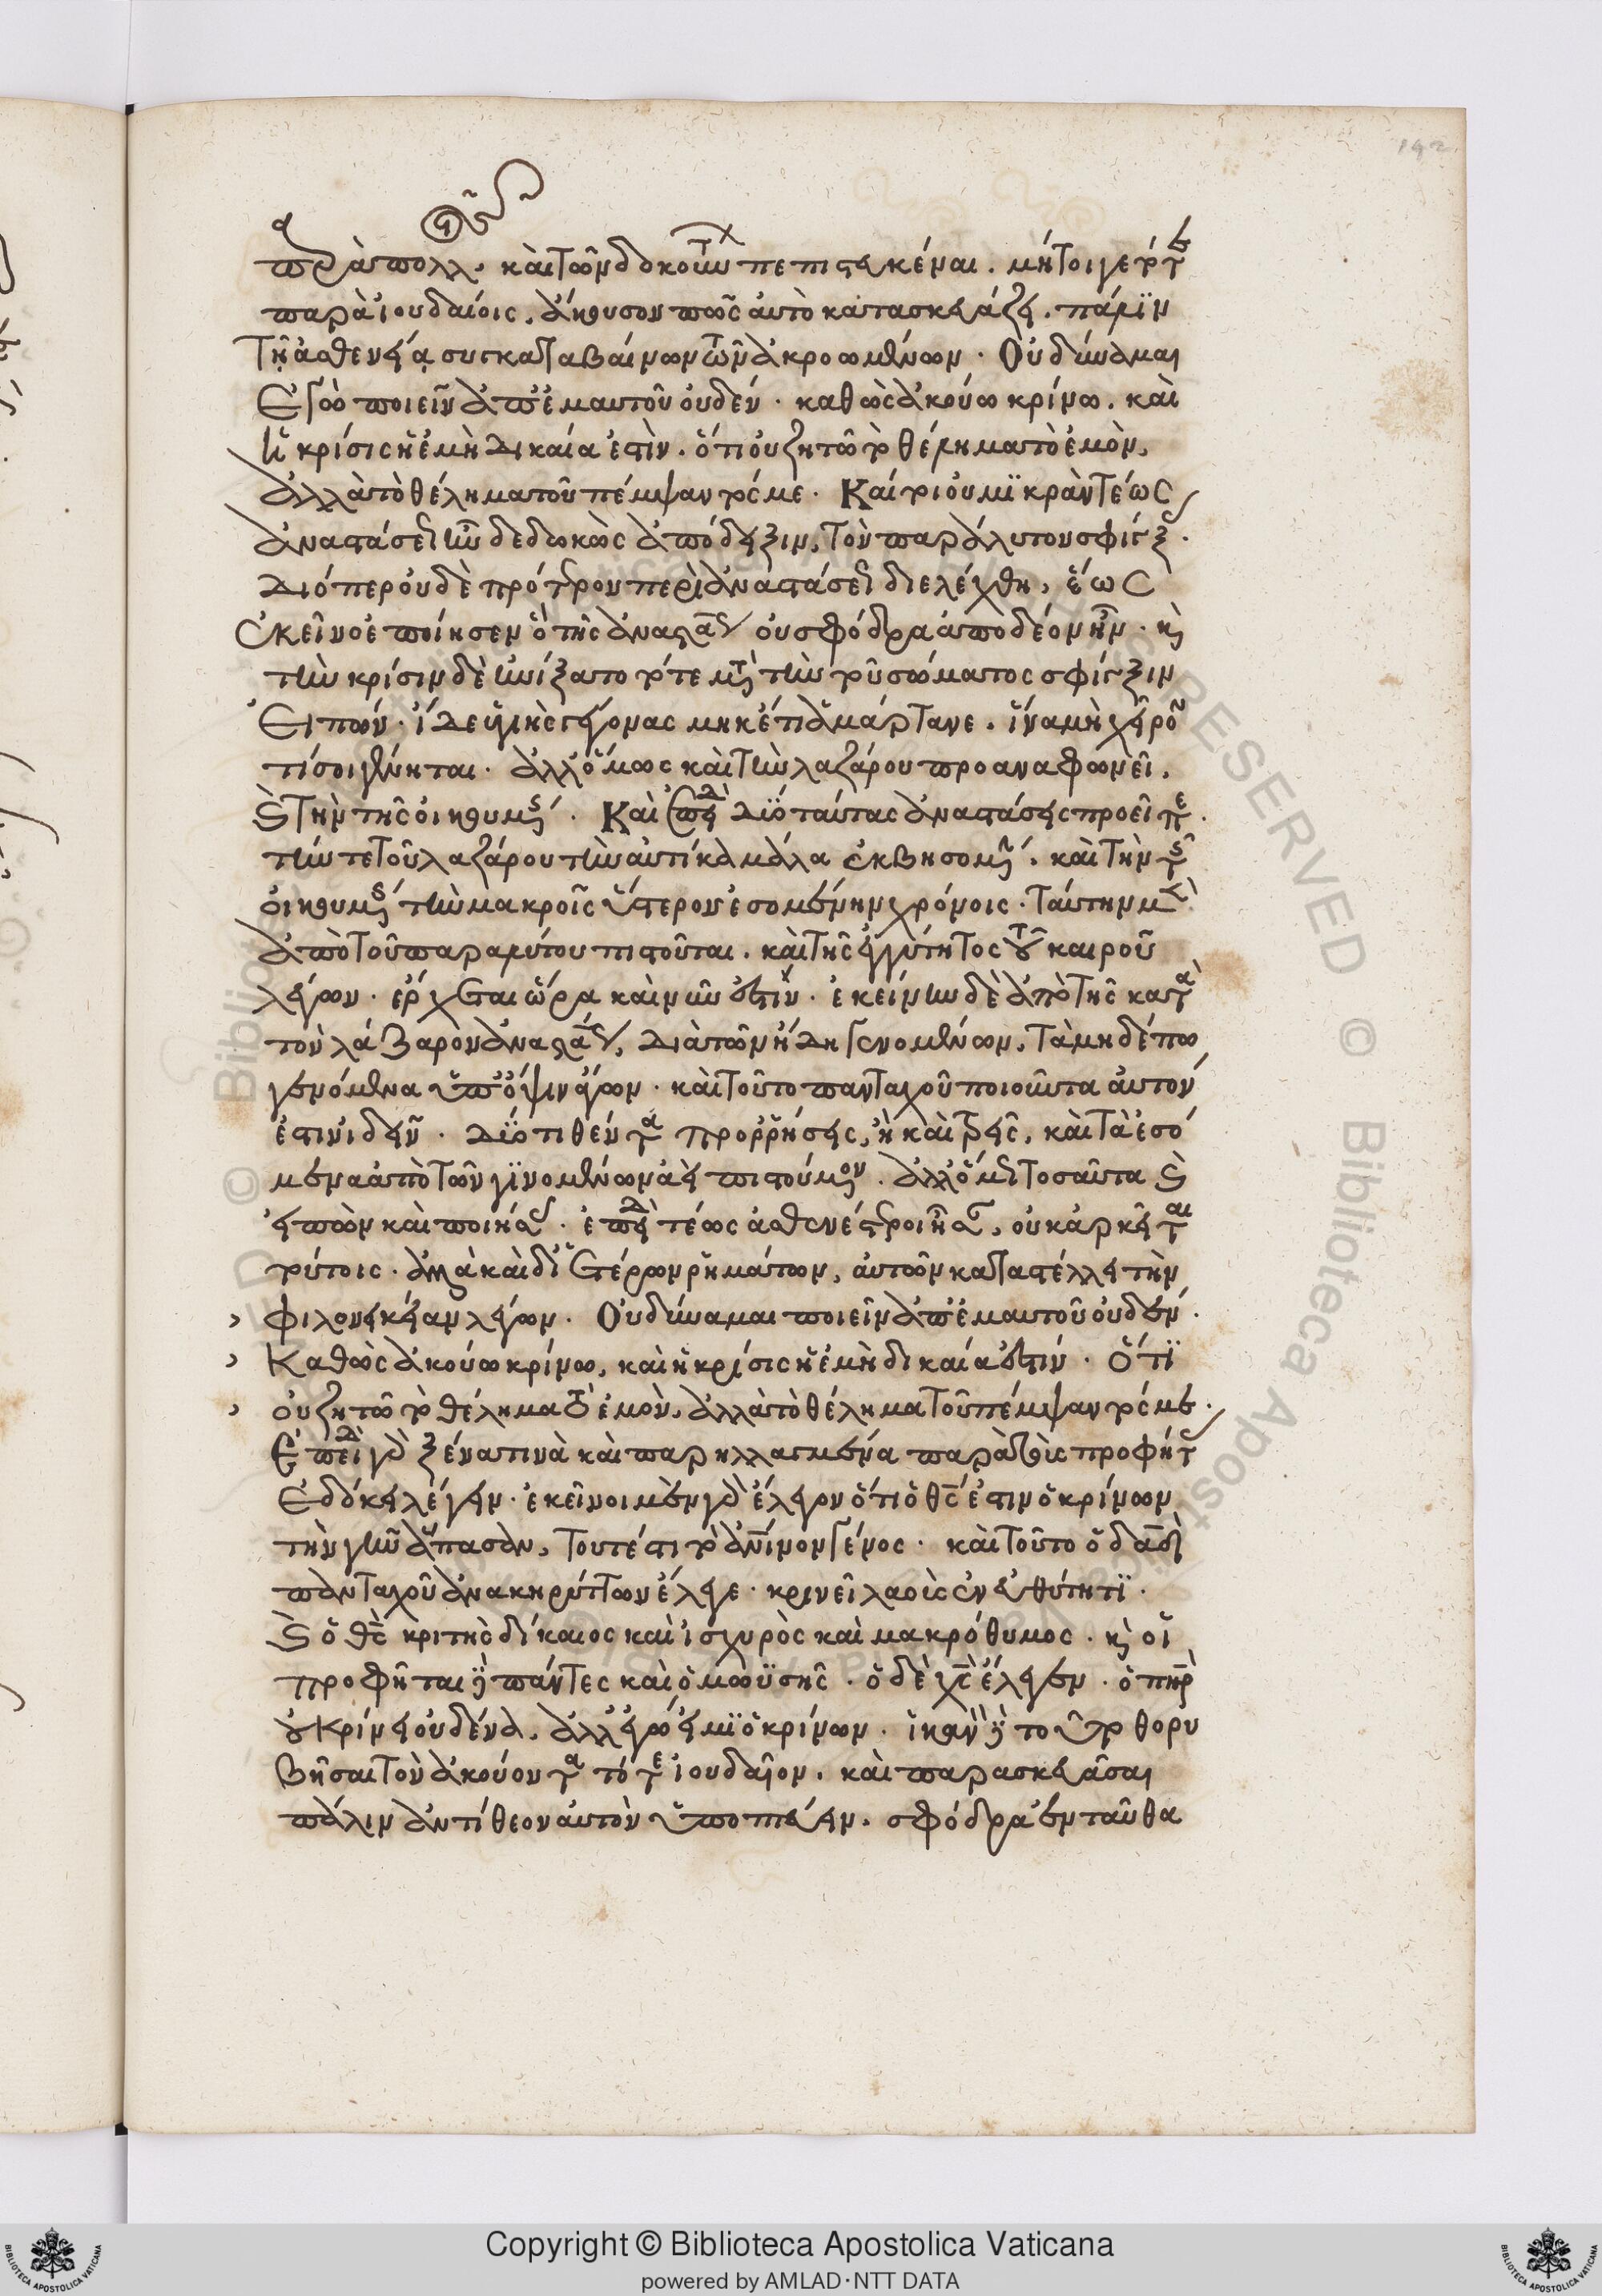 192
παρὰ πολλ. καὶ τῶν δοκούντων πεπιστευκέναι. μήτοιγε τοῖς
παρὰ ἰουδαίοις. ἄκουσον πῶς αὐτὸ κατασκευάζει. πάλιν
τῇ ἀσθενείᾳ συγκαταβαίνων τῶν ἀκροωμένων. Οὐ δύναμαι
ἐγὼ ποιεῖν ἀπ' ἐμαυτοῦ οὐδέν. καθὼς ἀκούω κρίνω. καὶ
ἡ κρίσις ἡ ἐμὴ δικαία ἐστὶν. ὅτι οὐ ζητῶ τὸ θέλημα τὸ ἐμὸν,
ἀλλὰ τὸ θέλημα τοῦ πέμψαντός με. Καί τοι οὐ μϊκρὰν τέως
ἀναστάσεως ἦν δεδωκὼς ἀπόδειξιν, τὸν παράλυτον σφίγξ.
Διόπερ οὐδὲ πρότερον περὶ ἀναστάσεως διελέχθη, ἕως
ἐκεῖνο ἐποίησεν ὃ τῆς ἀναστάσεως οὐ σφόδρα ἀποδέον ἦν. καὶ
τὴν κρίσιν δὲ ᾐνίξατο τότε μετὰ τὴν τοῦ σώματος σφίγξιν
εἰπών. ἴδε ὑγιὴς γέγονας μηκέτι ἁμάρτανε. ἵνα μὴ χεῖρόν
τί σοι γένηται. ἀλλ' ὅμως καὶ τὴν λαζάρου προαναφωνεῖ.
καὶ τὴν τῆς οἰκουμένης. Καὶ ἐπειδὴ δύο ταύτας ἀναστάσεις προεῖπε.
τήν τε τοῦ λαζάρου τὴν αὐτίκα μάλα ἐκβησομένην. καὶ τὴν τῆς
οἰκουμένης τὴν μακροῖς ὕστερον ἐσομένην χρόνοις. ταύτην μὲν
ἀπὸ τοῦ παραλύτου πιστοῦται. καὶ τῆς ἐγγύτητος τοῦ καιροῦ
λέγων. ἔρχεται ὥρα καὶ νῦν ἐστίν. ἐκείνην δὲ ἀπὸ τῆς κατὰ
τὸν λάζαρον ἀναστάσεως, διὰ τῶν ἤδη γενομένων, τὰ μηδέπω
γενόμενα ὑπ' ὄψιν ἄγων. καὶ τοῦτο πανταχοῦ ποιοῦντα αὐτὸν
ἔστιν ἰδεῖν. δύο τιθέντα προρρήσεις, ἢ καὶ τρεῖς, καὶ τὰ ἐσό
μενα ἀπὸ τῶν γϊνομένων ἀεὶ πιστούμενον. ἀλλ' ὅμως τοσαῦτα καὶ
εἰπὼν καὶ ποιήσας. ἐπειδὴ τέως ἀσθενέστεροι ἦσαν, οὐκ ἀρκεῖται
τούτοις. ἀλλὰ καὶ δι' ἑτέρων ῥημάτων, αὐτῶν καταστέλλει τὴν
φιλονεικείαν λέγων. Οὐ δύναμαι ποιεῖν ἀπ' ἐμαυτοῦ οὐδέν.
Καθὼς ἀκούω κρίνω, καὶ ἡ κρίσις ἡ ἐμὴ δικαία ἐστίν. Ὅτϊ
οὐ ζητῶ τὸ θέλημα τὸ ἐμὸν, ἀλλὰ τὸ θέλημα τοῦ πέμψαντός με.
Ἐπειδὴ γὰρ ξένα τινὰ καὶ παρηλλαγμένα παρὰ τοὺς προφήτας
ἐδόκει λέγειν. ἐκεῖνοι μὲν γὰρ ἔλεγον ὅτι ὁ θς ἐστιν ὁ κρίνων
τὴν γῆν ἅπασαν, τουτέστι τὸ ἀνινον γένος. καὶ τοῦτο ὁ δαδ
πανταχοῦ ἀνακηρύττων ἔλεγε. κρινεῖ λαοὺς ἐν εὐθύτητϊ.
καὶ ὁ θς κριτὴς δίκαιος καὶ ἰσχυρὸς καὶ μακρόθυμος. καὶ οἱ
προφῆται δὲ πάντες καὶ ὁ μωϋσῆς. ὁ δὲ χς ἔλεγεν. ὁ πηρ
οὐ κρίνει οὐδένα. ἀλλ' ἐγώ εἰμϊ ὁ κρίνων. ἱκανὸν δὲ τοῦτο θορυ
βῆσαι τὸν ἀκούοντα τότε ἰουδαῖον. καὶ παρασκευᾶσαι
πάλιν ἀντίθεον αὐτὸν ὑποπτεύειν. σφόδρα ἐνταῦθα
Copyright © Biblioteca Apostolica Vaticana
powered by AMLAD·NTT DATA